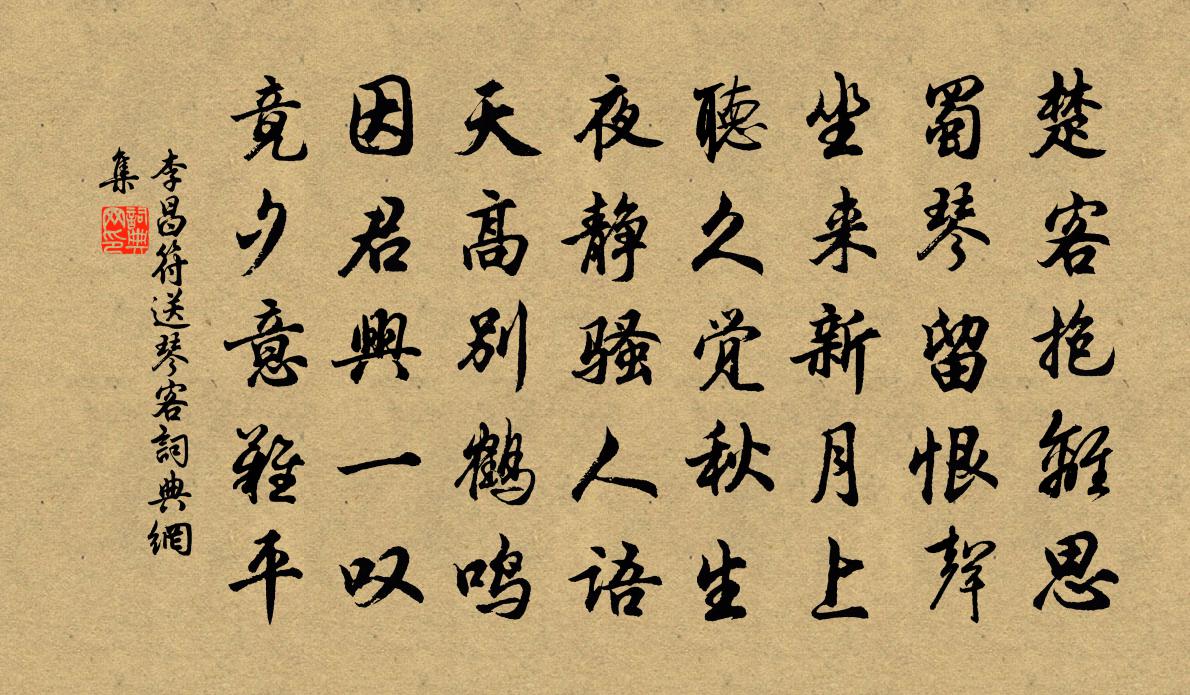 楚客抱離思
蜀琴留恨聲
坐来新月上
聽久覚秋生
夜静騷人语
天高别鶴鸣
因君興一叹
竟夕意難平
李昌符送琴客詞典網
集
詞典
网印